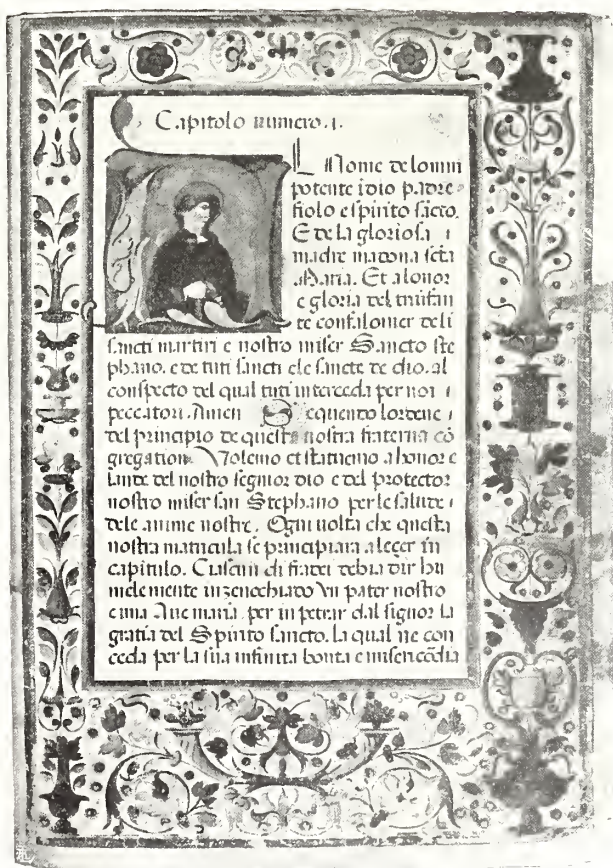 Capitolo numero .1.
L Nome de lomni
potente idio padre
fiolo e spirito sācto.
E de la gloriosa i
madre madona sctā
Maria. Et alonor
e gloria del triūfan
te confaloner de li
sancti martiri e nostro miser Sancto ste
phano. e de tuti sancti e le sancte de dio. al
conspecto del qual tuti interceda per noi i
peccatori. Amen Sequendo lordene i
del principio de questa nostra fraterna cō
gregation. Volemo et statuemo a honor e
laude del nostro segnor dio e del protector
nostro miser san Stephano per le salute i
dele anime nostre. Ogni uolta che questa
nostra matricula se principiara a leger in
capitulo. Ciascun di fratei debia dir hu
melemente inzenochiado vn pater nostro
e una Aue maria. per inpetrar dal signor la
gratia del Spirito sancto. la qual ne con
ceda per la sua infinita bonta e misericōdia